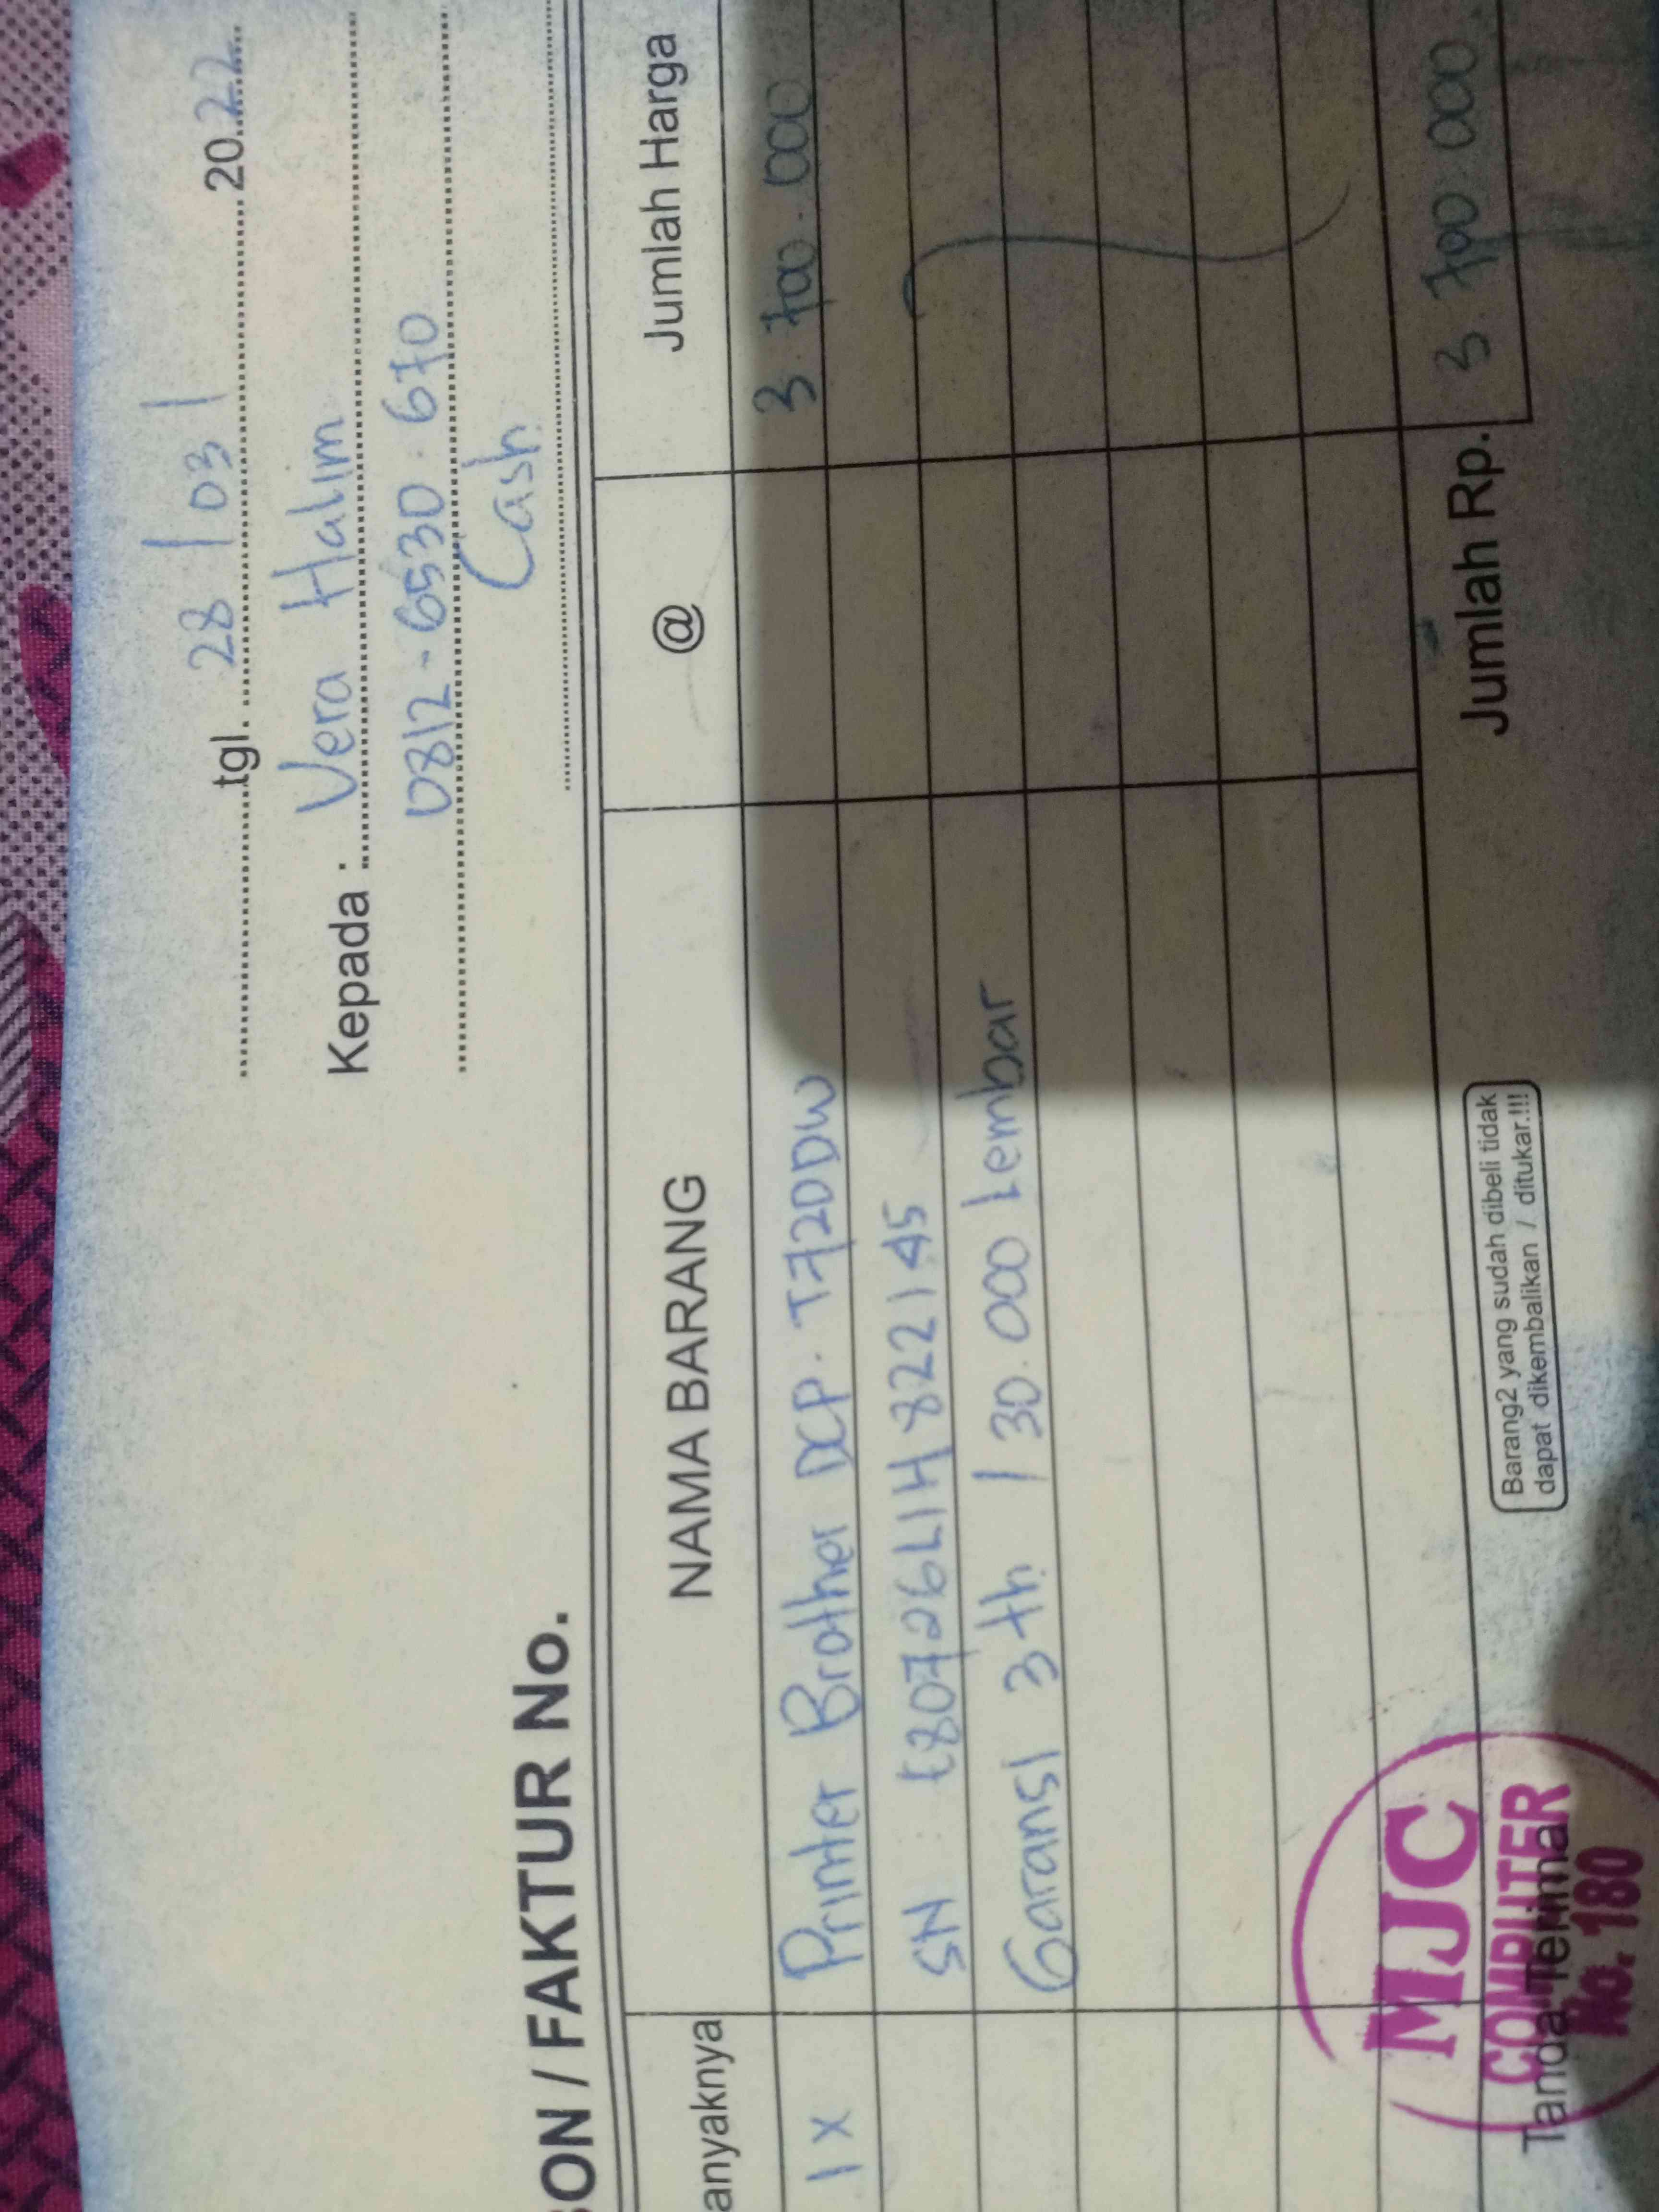 tgl. 28 / 03 / 2022
Kepada : Vera Halim
0812-6530.670
Cash
BON / FAKTUR No.
anyaknya NAMA BARANG @ Jumlah Harga
1 x Printer Brother DCP. T720DW 3.700.000
SN : E80726L1H822145
Garansi 3 th / 30.000 Lembar
Jumlah Rp. 3 700.000
Barang2 yang sudah dibeli tidak
dapat dikembalikan / ditukar.!!!
Tanda Terima
MJC
COMPUTER
No. 180